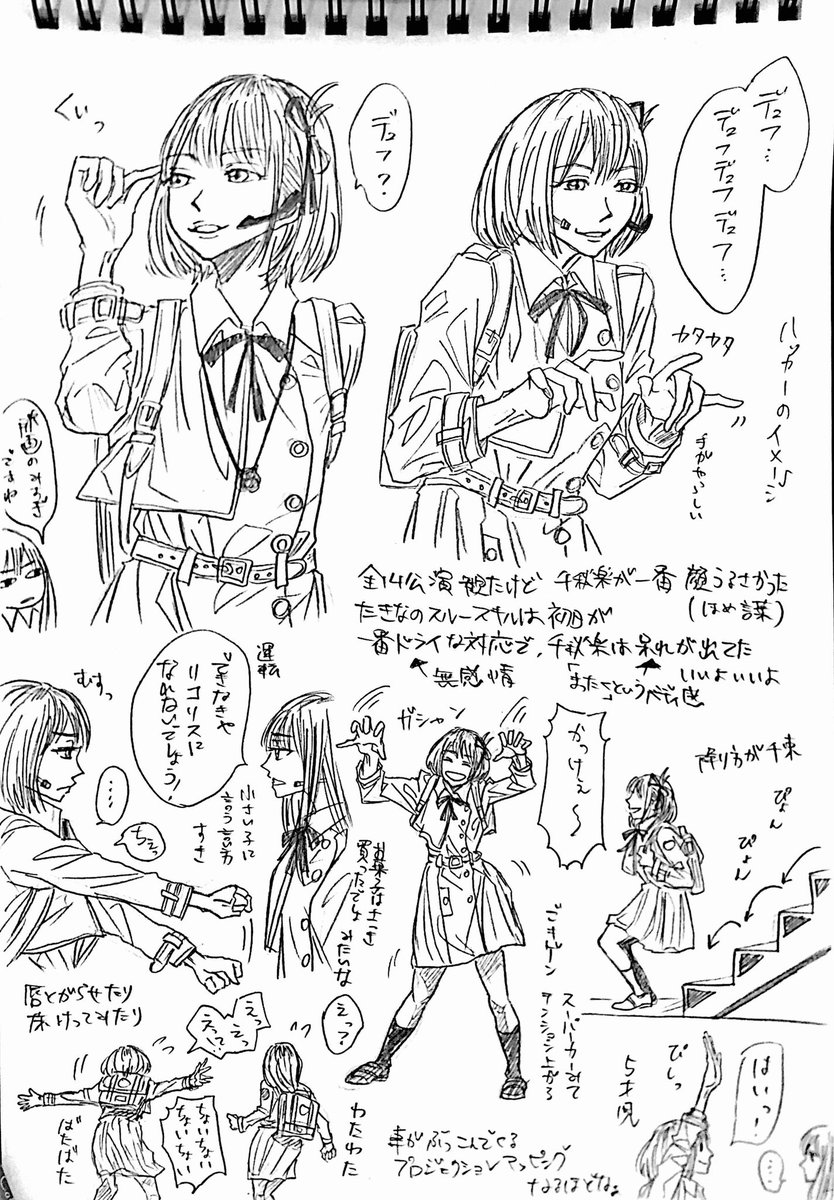 デュフ…
デュフデュフデュフ…
デュフ?
くいっ
カタカタ
ハッカーのイメージ
手がやらしい
映画のみすぎ
ですわ
全14公演観たけど 千秋楽が一番 顔うるさかった
(ほめ言葉)
たきなのスルースキルは初日が
一番ドライな対応で、千秋楽は呆れが出てた
無感情
「まったく」というバディ感
いいよいいよ
運転
できなきゃ
リコリスに
なれないでしょう!
むすっ
…
ちぇっ
小さい子に
言う言い方
すき
お菓子はさっき
買ったでしょ
みたいな
唇とがらせたり
ガシャン
かっけぇ〜
ごきげん
スーパーカーみて
テンション上がる
降り方が千束
ぴょん
ぴょん
えっ?
えっ
えっ?
ないない
ないない
ばたばた
わたわた
車がぶっこんでくる
プロジェクションマッピング
なるほどな。
はいっ!
ぴしっ
5才児
…